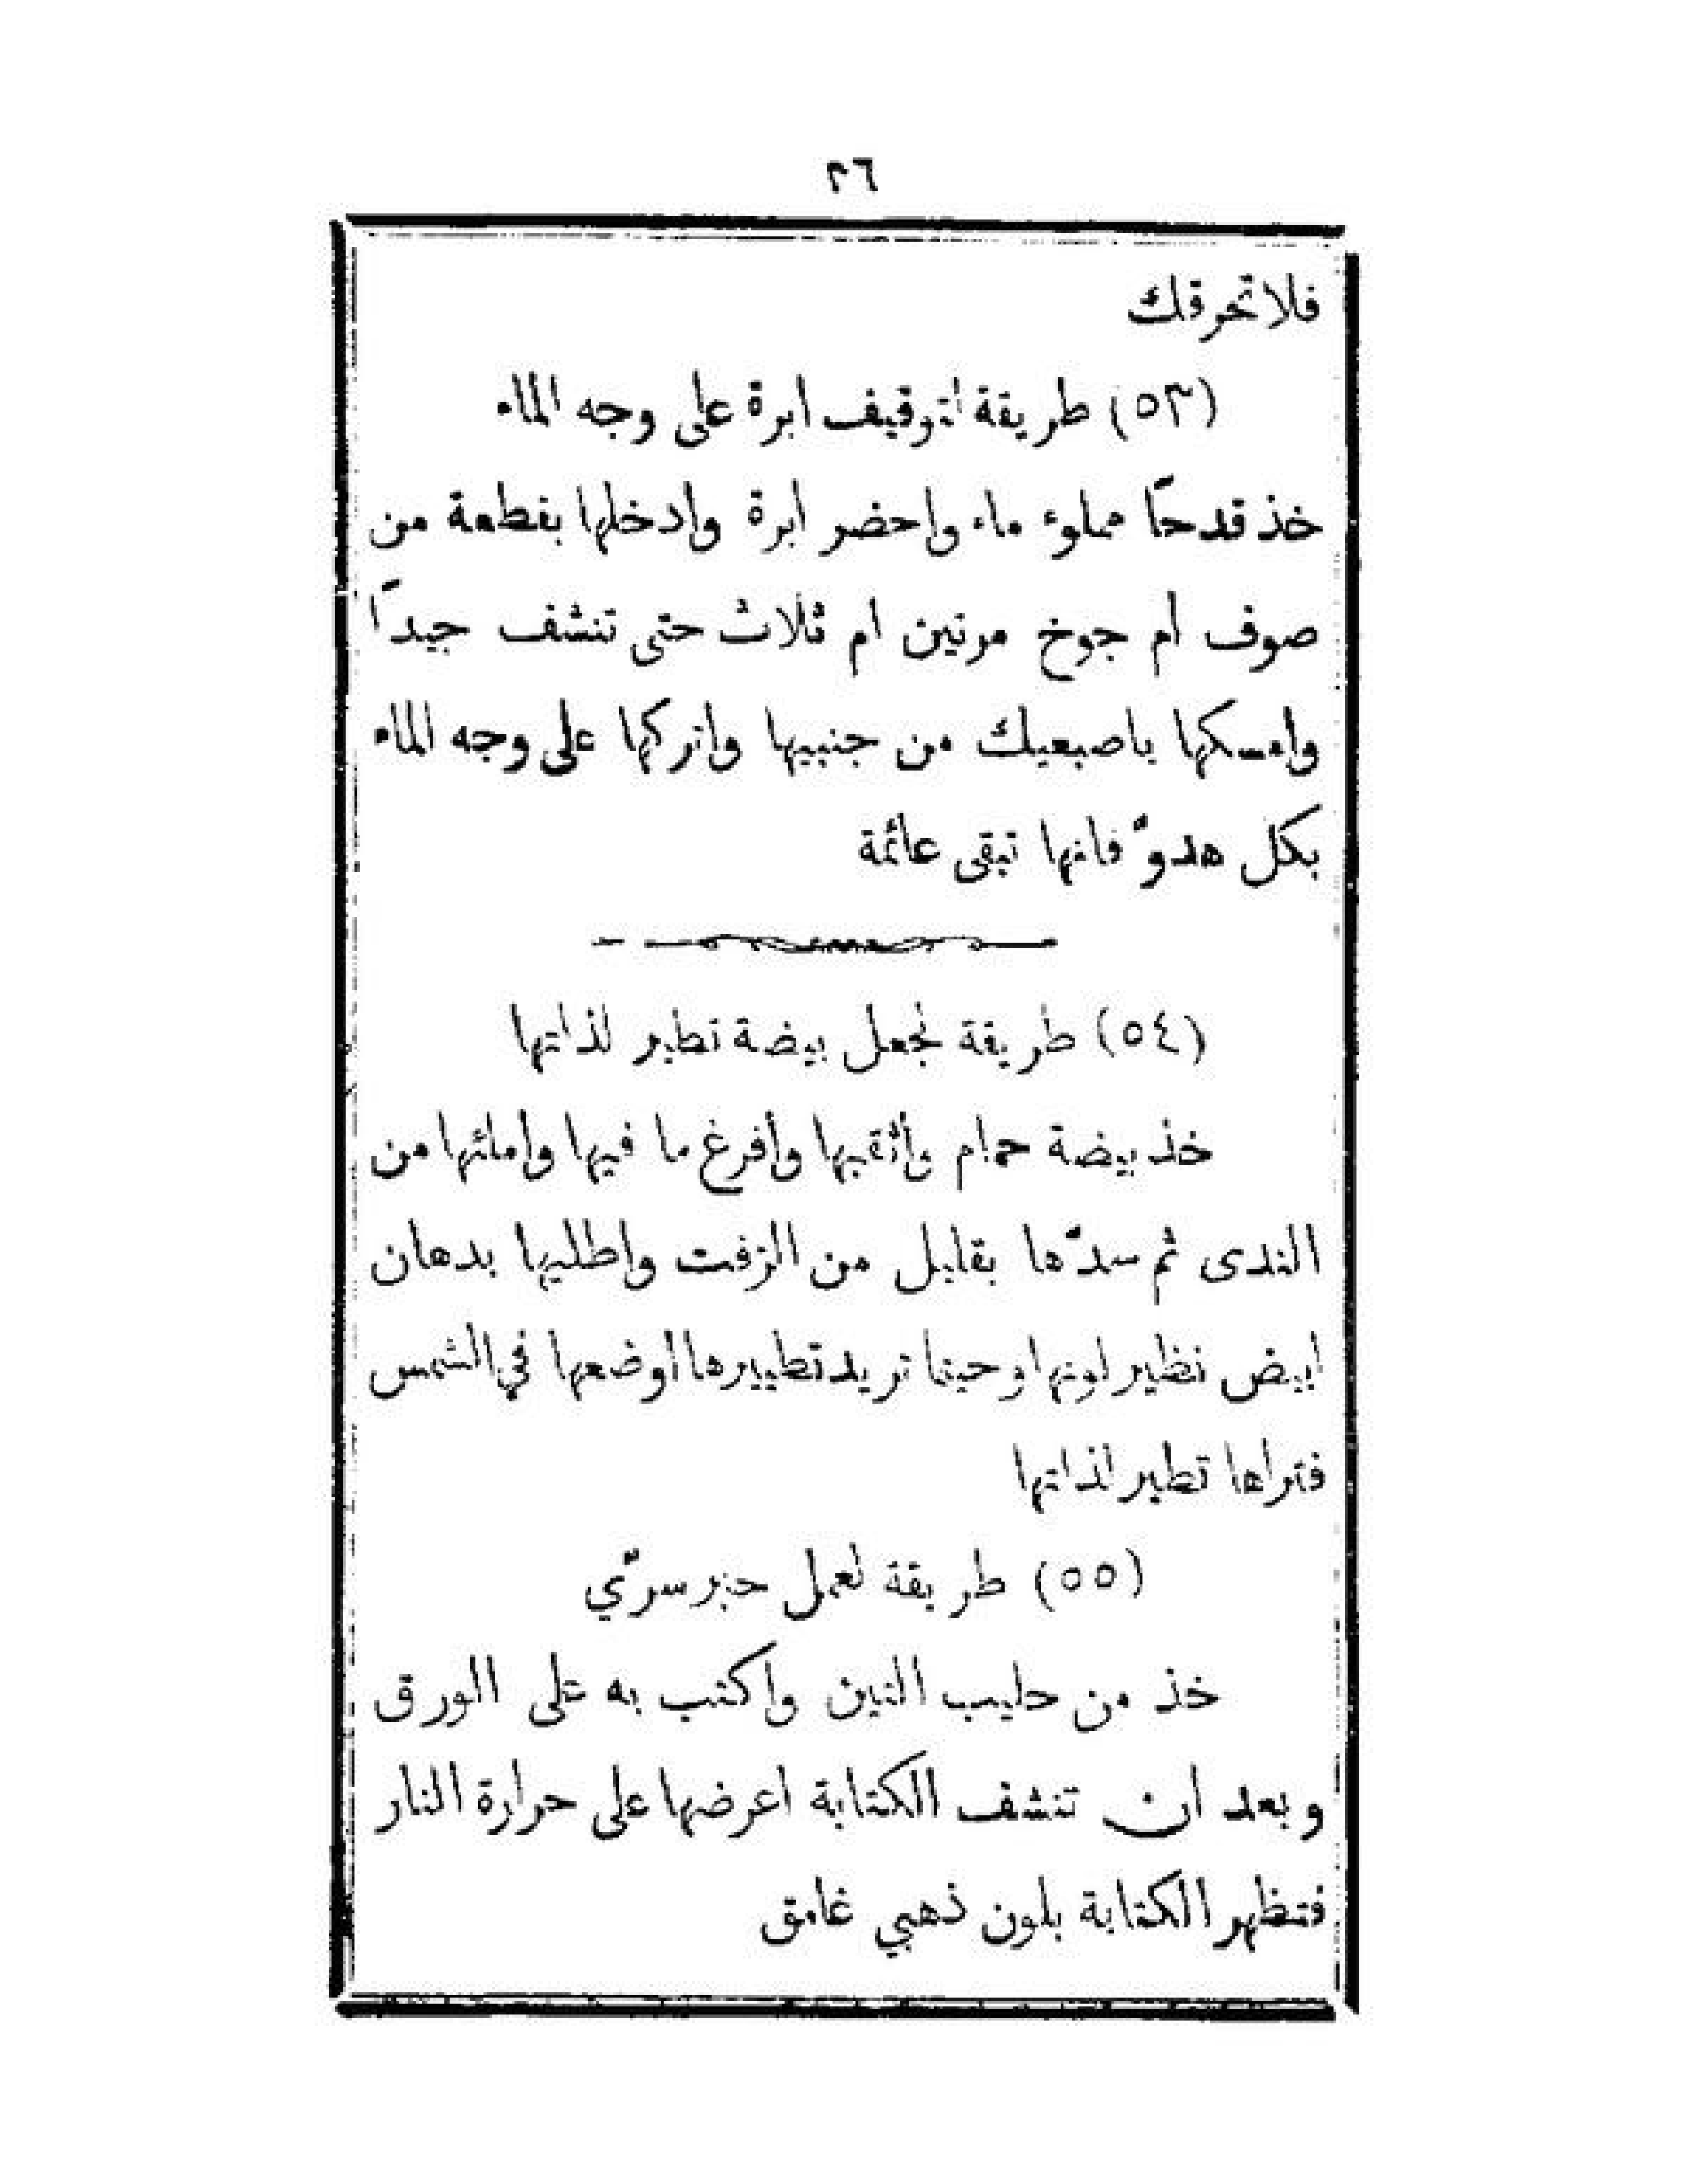 ٢٦
فلا تحرقك
(٥٣) طريقة لتوقيف ابرة على وجه الماء
خذ قدحًا مملوء ماء واحضر ابرة وادخلها بقطعة من
صوف ام جوخ مرتين ام ثلاث حتى تنشف جيدًا
وامسكها باصبعيك من جنبيها واتركها على وجه الماء
بكل هدوّ فانها تبقى عائمة
(٥٤) طريقة لجعل بيضة تطير لذاتها
خذ بيضة حمام وأثقبها وأفرغ ما فيها وأملئها من
الندى ثم سدّها بقليل من الزفت واطليها بدهان
ابيض نظير لونها وحينما تريد تطييرها اوضعها في الشمس
فتراها تطير لذاتها
(٥٥) طريقة لعمل حبر سرّي
خذ من حليب التين واكتب به على الورق
وبعد ان تنشف الكتابة اعرضها على حرارة النار
فتظهر الكتابة بلون ذهبي غامق